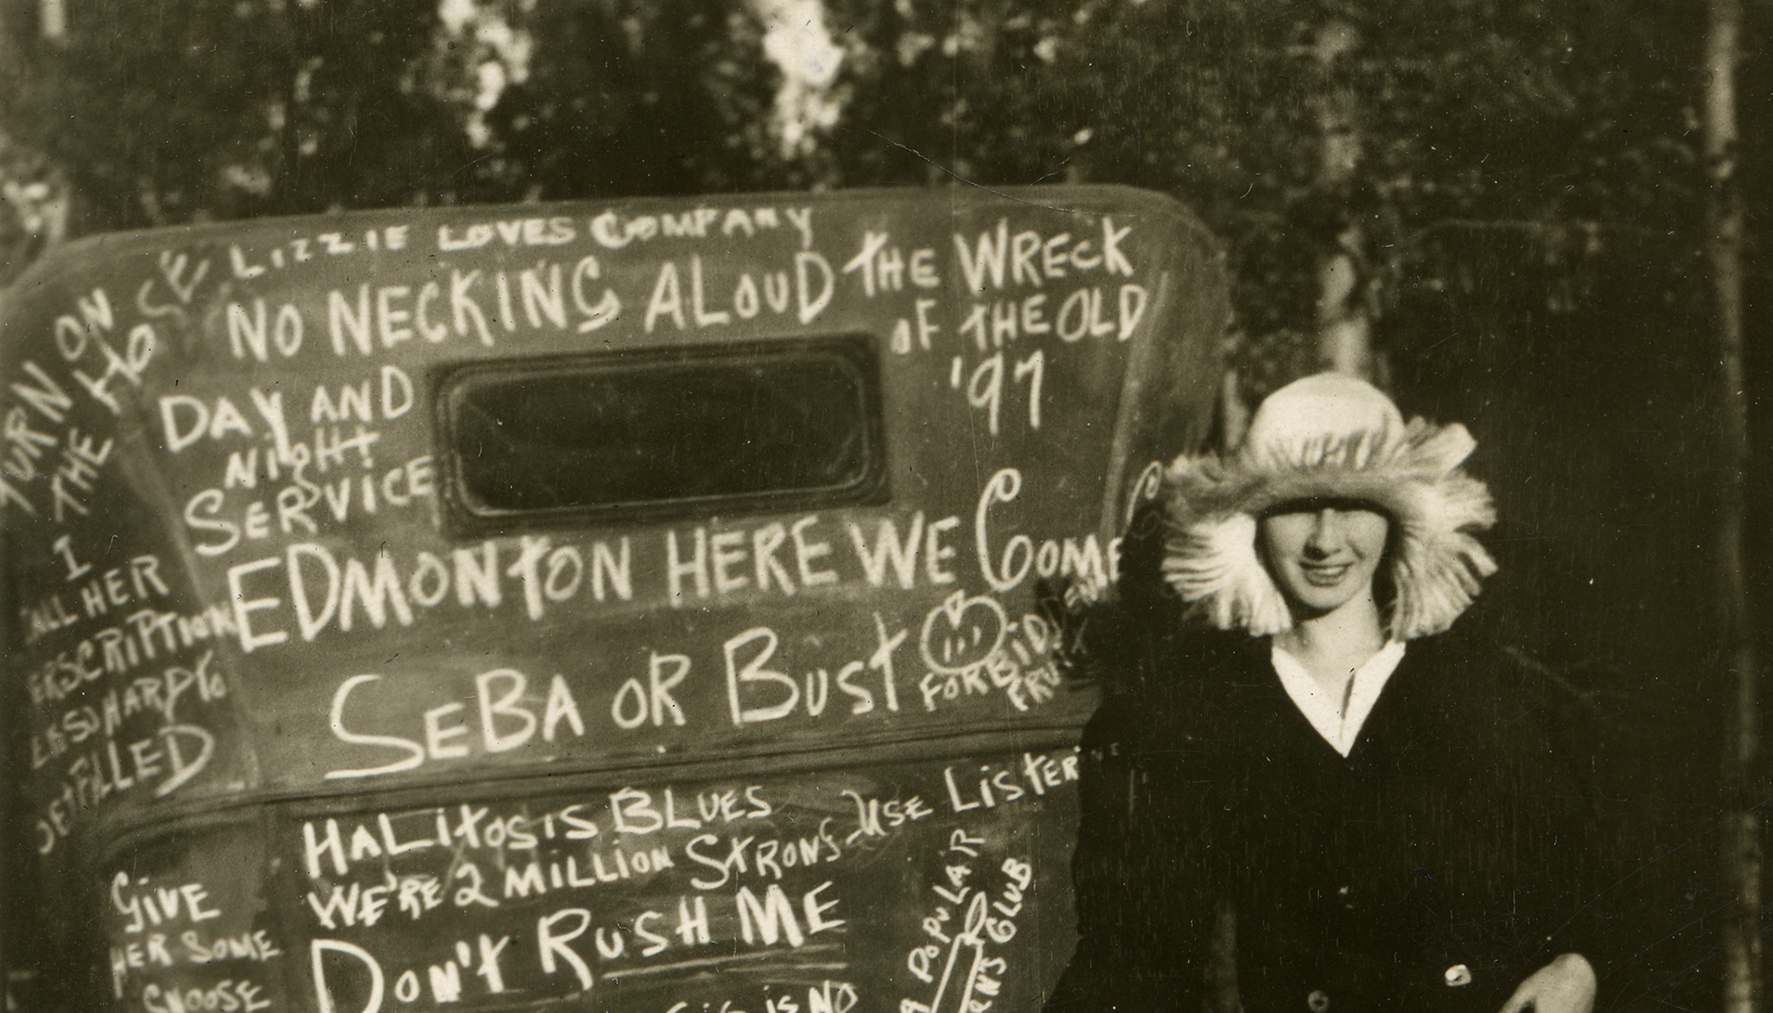 TURN ON
THE HOSE
LIZZIE LOVES COMPANY
NO NECKING ALOUD
THE WRECK
OF THE OLD
'97
DAY AND
NIGHT
SERVICE
EDMONTON HERE WE COME
I
HER
SO HARD TO
SEBA OR BUST
FORBIDDEN
FRUIT
HALITOSIS BLUES
USE LISTERINE
WE'RE 2 MILLION STRONG
DON'T RUSH ME
GIVE
HER SOME
CHOOSE
POPULAR
CLUB
IS NO